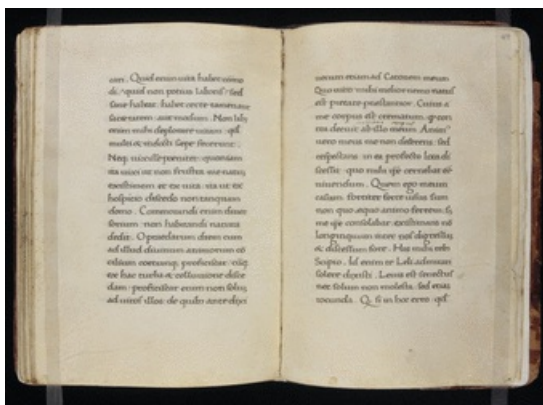 Quid enim uita habet como
di. quid non potius laboris? sed
sane habeat. habet certe tamen aut
aut modum. Non
enim mihi deplorare uitam: qđ
multi et sepe fecerunt:
Neq uixisse poenitet: quoniam
ita uixi ut non frustra me natū
existimem et ex uita ita ut ex
hospicio discedo non tanquam
domo. Commorandi enim diuer
sorium non habitandi natura
dedit. O praeclarum diem cum
ad illud diuinum animorum cō
cilium coetumq. proficiscar: cūq
ex hac turba et colluuione disce
dam: proficiscar enim non solū
ad uiros illos de quib ante dixi
uerum etiam ad Catonem meum
Quo uiro melior nemo natus
est pietate praestancior. Cuius a
me corpus est crematum. quod con
tra decuit ab illo meum. Anim
uero meus me non deserens sed
respectans in ea profecto loca di
scessit: quo mihi ipse cernebat eē
ueniendum. Quem ego meum
casum fortiter ferre uisus sum
non quo equo animo ferrem. sʒ
me ipse consolabar existimans nō
longinquum inter nos digressum
et discessum fore. His mihi rebus
Scipio. Id enim te cum Lelio admirari
solere dixisti. Leuis est senectus
nec solum non molesta. sed etiā
iocunda. Q si in hoc erro. qđ